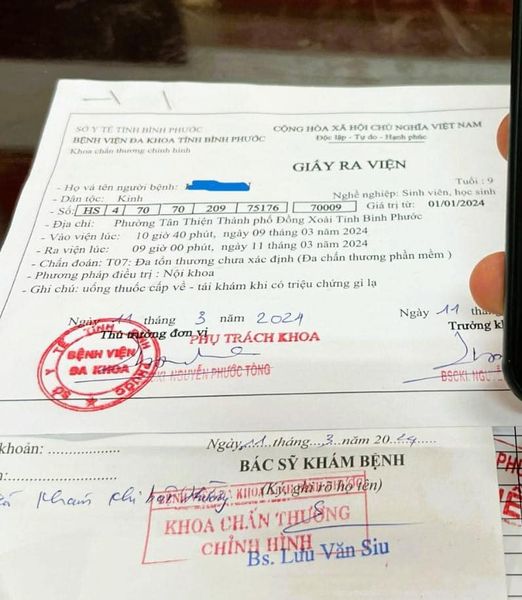 SỞ Y TẾ TỈNH BÌNH PHƯỚC
BỆNH VIỆN ĐA KHOA TỈNH BÌNH PHƯỚC
Khoa chấn thương chỉnh hình
CỘNG HÒA XÃ HỘI CHỦ NGHĨA VIỆT NAM
Độc lập - Tự do - Hạnh phúc
GIẤY RA VIỆN
- Họ và tên người bệnh:
Tuổi : 9
- Dân tộc: Kinh
Nghề nghiệp: Sinh viên, học sinh
- Số: HS 4 70 70 209 75176 70009 Giá trị từ: 01/01/2024
- Địa chỉ: Phường Tân Thiện Thành phố Đồng Xoài Tỉnh Bình Phước
- Vào viện lúc: 10 giờ 40 phút, ngày 09 tháng 03 năm 2024
- Ra viện lúc: 09 giờ 00 phút, ngày 11 tháng 03 năm 2024
- Chẩn đoán: T07: Đa tổn thương chưa xác định (Đa chấn thương phần mềm )
- Phương pháp điều trị : Nội khoa
- Ghi chú: uống thuốc cấp về - tái khám khi có triệu chứng gì lạ
Ngày 11 tháng 3 năm 2024
Thủ trưởng đơn vị
PHỤ TRÁCH KHOA
BSCKI. NGUYỄN PHƯỚC TÒNG
SỞ Y TẾ TỈNH BÌNH PHƯỚC
BỆNH VIỆN
ĐA KHOA
Ngày 11
Trưởng kh
BSCKI. NGUYỄ
khoản:
Ngày 11 tháng 3 năm 2024
BÁC SỸ KHÁM BỆNH
(Ký, ghi rõ họ tên)
KHOA CHẤN THƯƠNG
CHỈNH HÌNH
Bs. Lưu Văn Siu